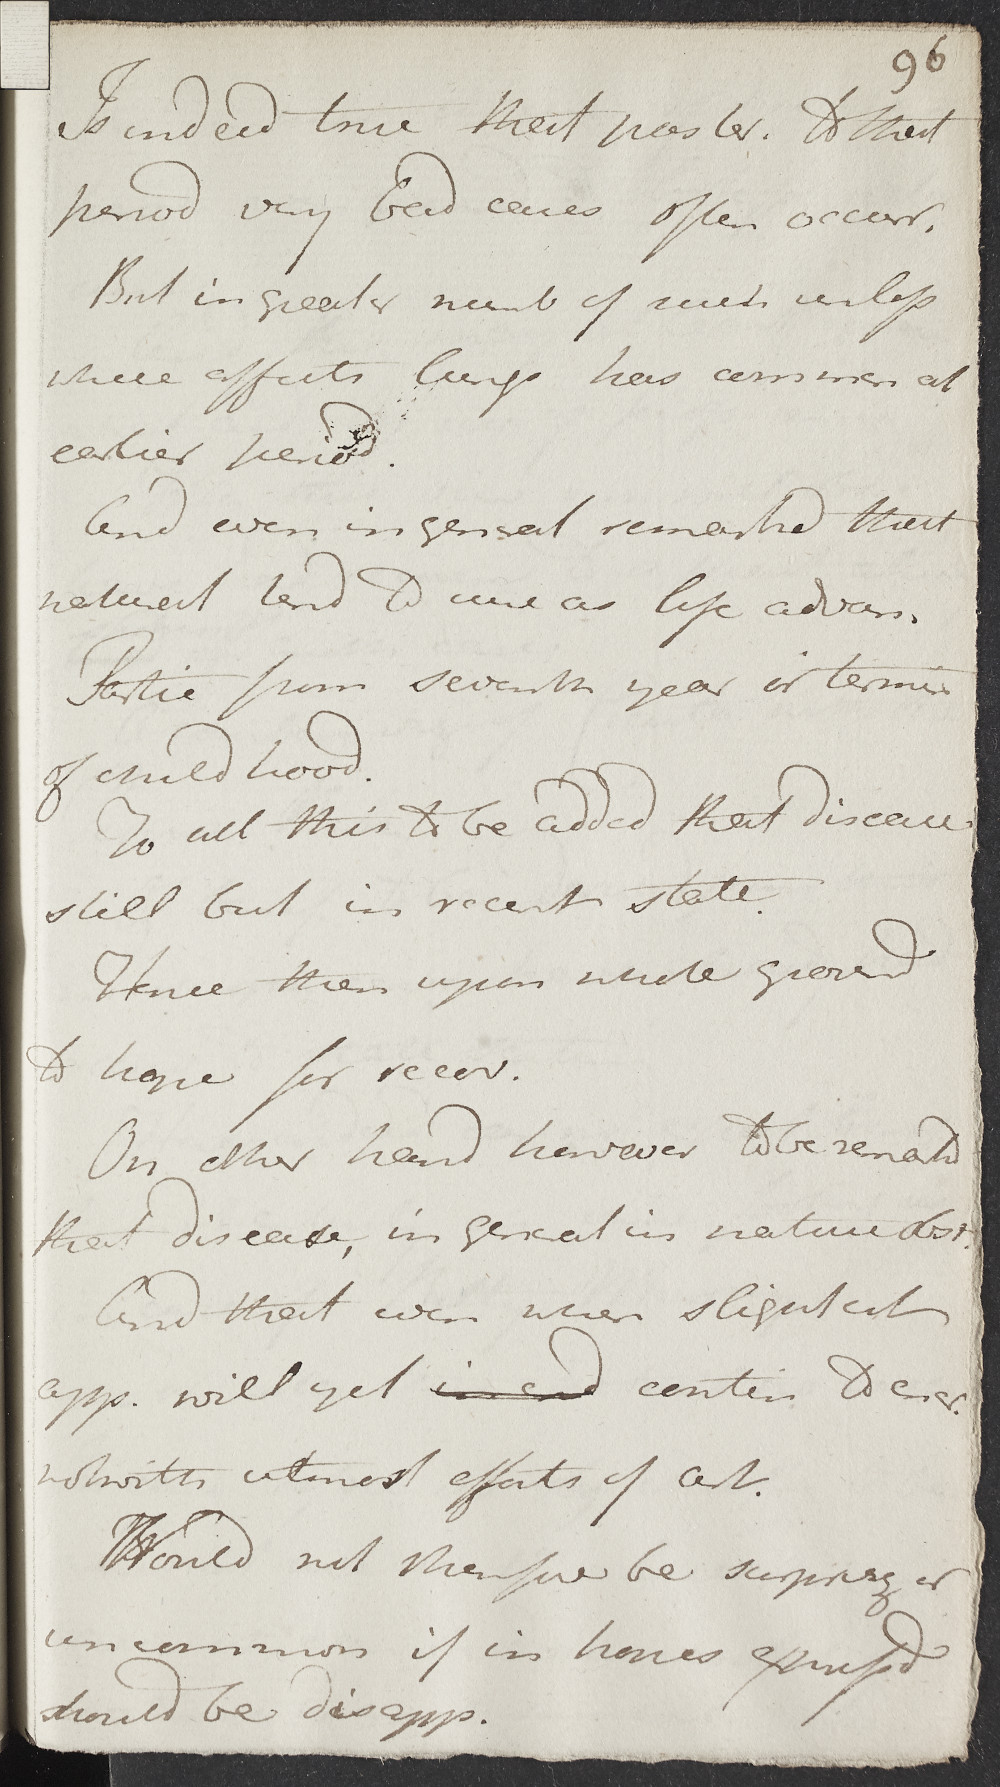 96
Is indeed true that poster. to that
period very bad cases often occurr.
But in greater numb of such unless
where affects lungs has commen at
earlier period.
And even in general remarked that
natural tend to cure as life advan.
Partic from seventh year or termin
of childhood.
To all this to be added that disease
still but in recent state.
Hence then upon whole ground
to hope for recov.
On other hand however to be remarkd
that disease, in general in nature obst.
And that even when slightest
app. will yet in end contin to
notwith utmost efforts of art.
Would not therefore be surprizg or
uncommon if in hopes expressd
should be disapp.